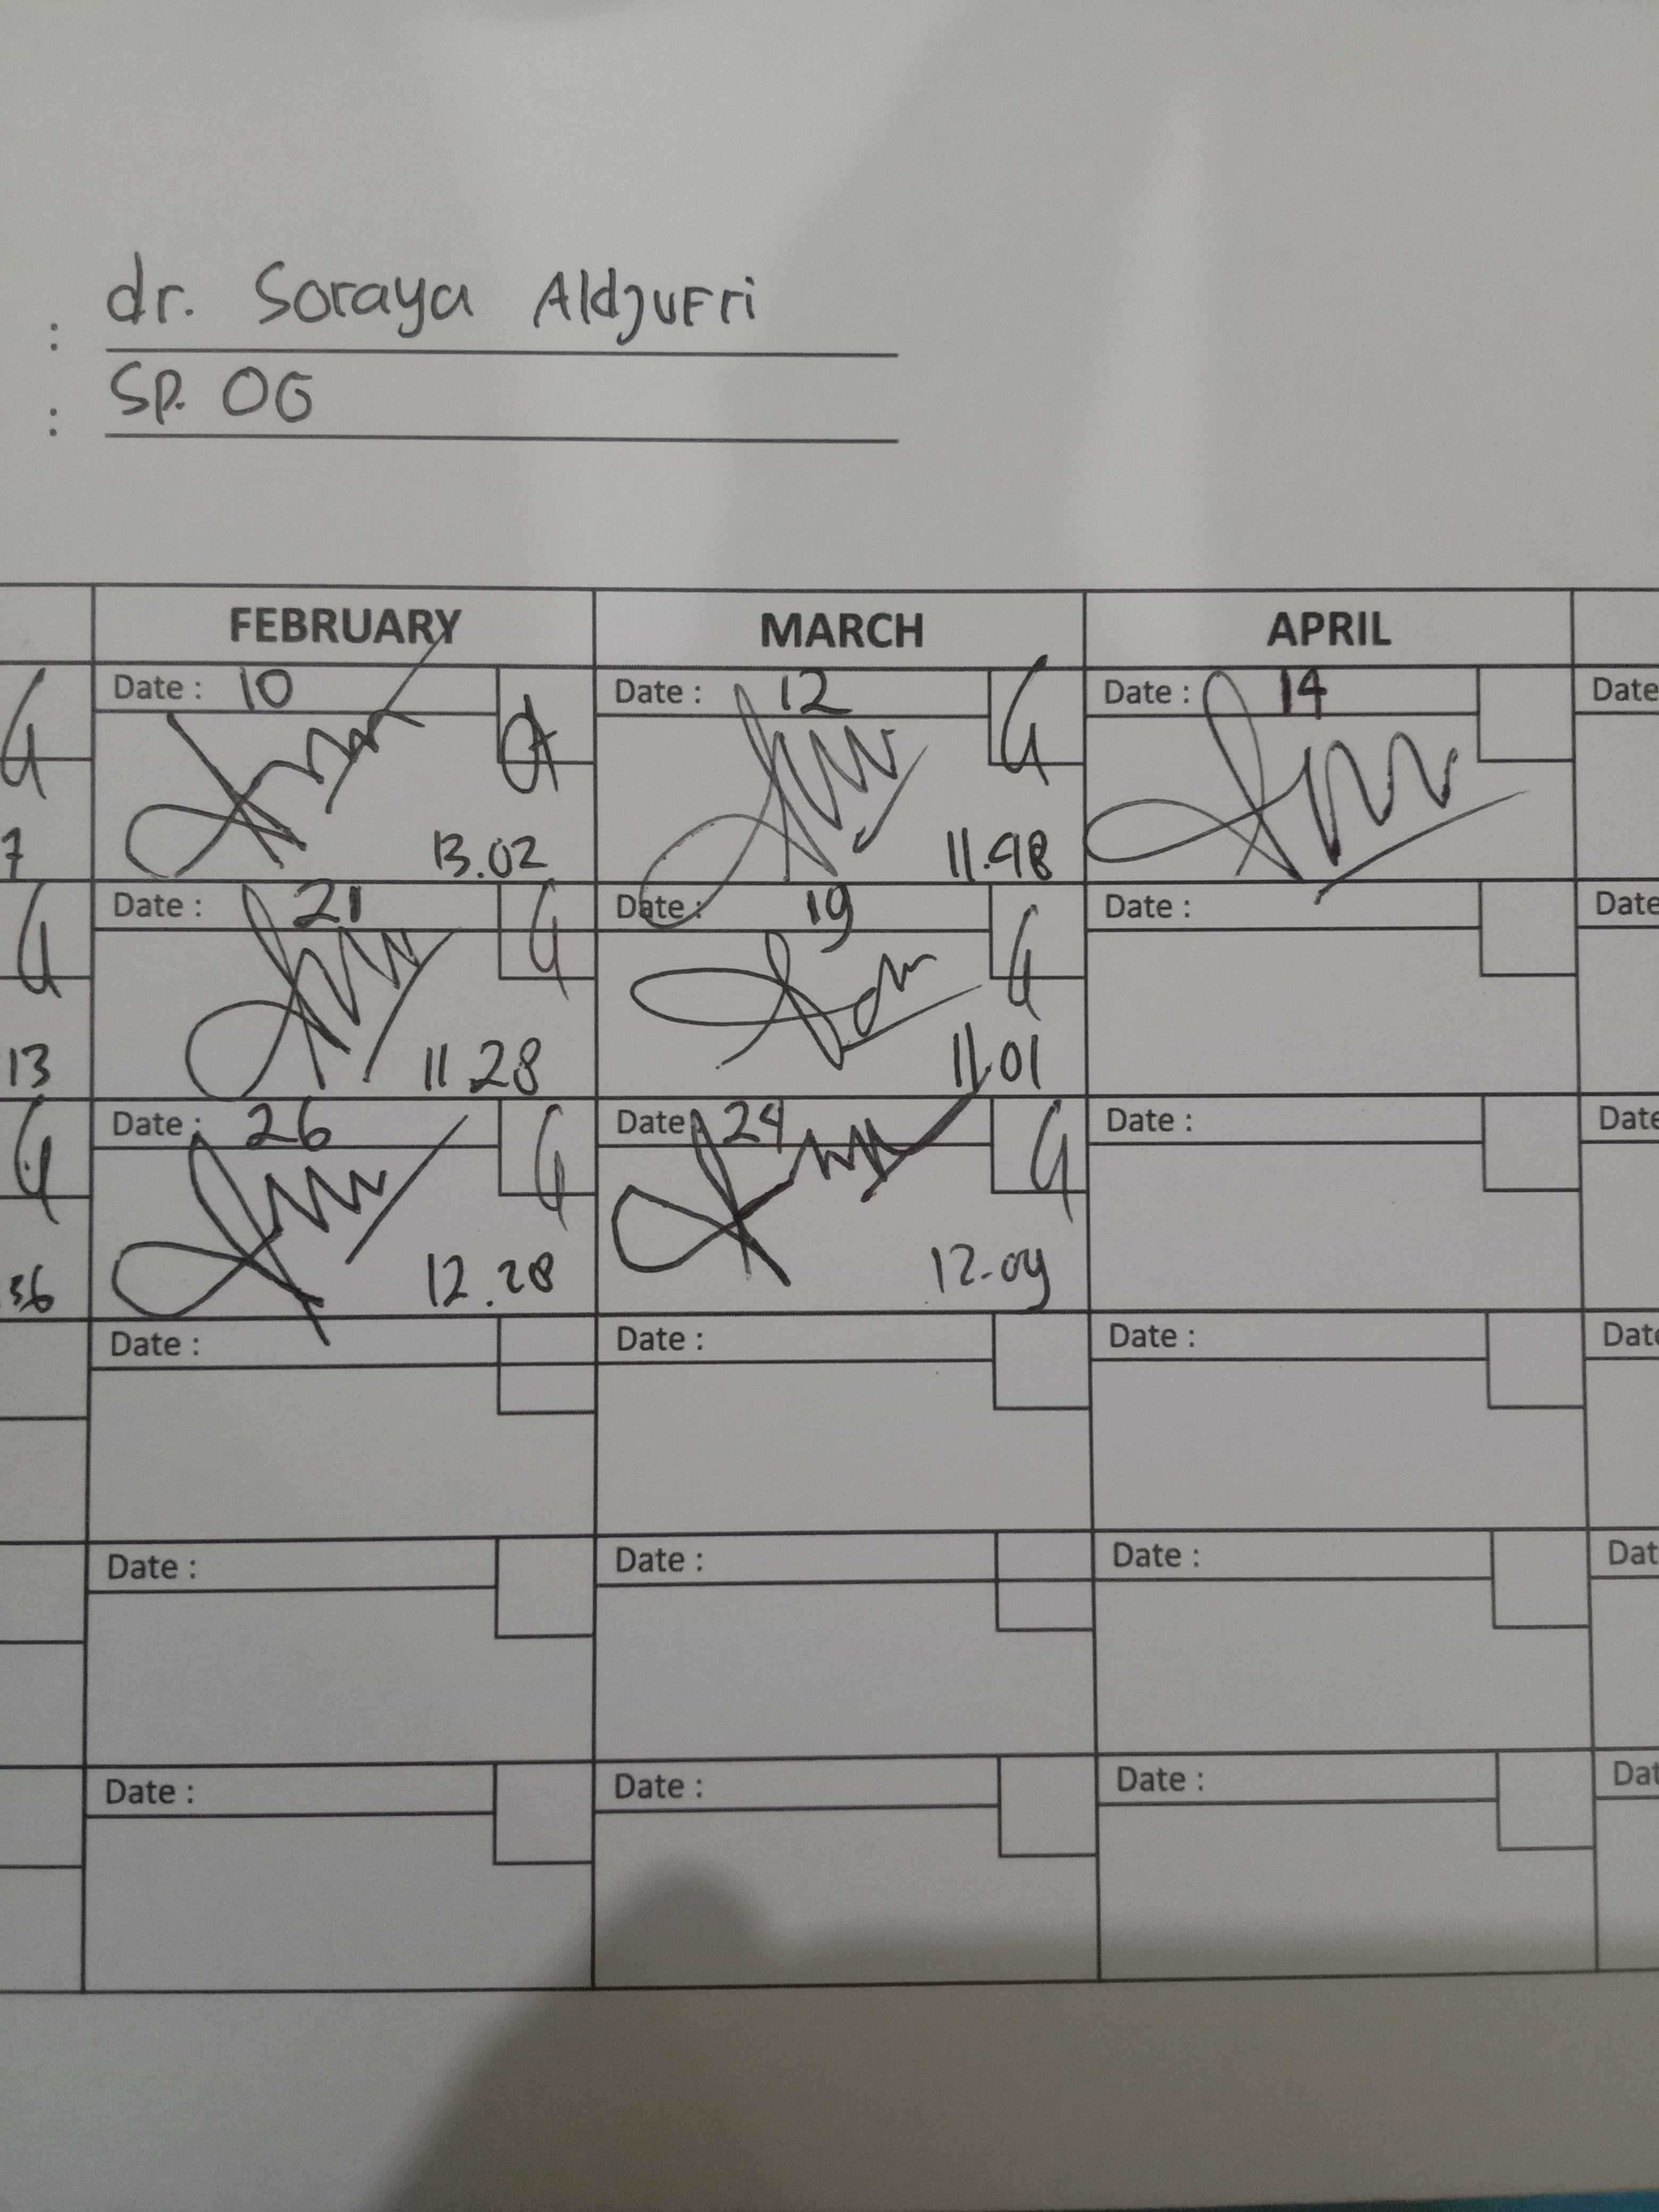 : dr. Soraya Aldjufri
: SP. OG
FEBRUARY MARCH APRIL
Date : 10 Date : 12 Date : 14 Date
7 13.02 11.48
Date : 21 Date : 19 Date : Date
13 11 28 11.01
Date : 26 Date 24 Date : Date
36 12.28 12.09
Date : Date : Date : Date
Date : Date : Date : Dat
Date : Date : Date : Dat